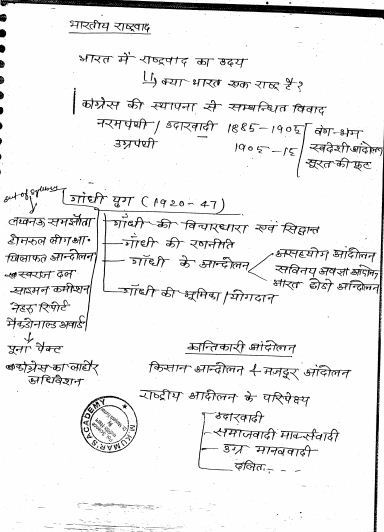 भारतीय राष्ट्रवाद
भारत में राष्ट्रवाद का उदय
क्या भारत एक राष्ट्र है?
कांग्रेस की स्थापना से सम्बन्धित विवाद
नरमपंथी / उदारवादी 1885-1905
उग्रपंथी 1905-19
बंग-भंग
स्वदेशी आंदोलन
सूरत की फूट
out of syllabus
गांधी युग (1920-47)
गाँधी की विचारधारा एवं सिद्धान्त
गाँधी की रणनीति
गाँधी के आन्दोलन
असहयोग आंदोलन
सविनय अवज्ञा आंदोलन
भारत छोडो आन्दोलन
गाँधी की भूमिका/योगदान
लखनऊ समझौता
होमरूल लीग आ.
खिलाफत आन्दोलन
स्वराज दल
साइमन कमीशन
नेहरू रिपोर्ट
मैकडोनाल्ड अवार्ड
पूना पैक्ट
कांग्रेस का लाहौर
अधिवेशन
क्रान्तिकारी आंदोलन
किसान आन्दोलन + मजदूर आंदोलन
राष्ट्रीय आंदोलन के परिप्रेक्ष्य
उदारवादी
समाजवादी मार्क्सवादी
उग्र मानववादी
दलित
KUMAR'S ACADEMY